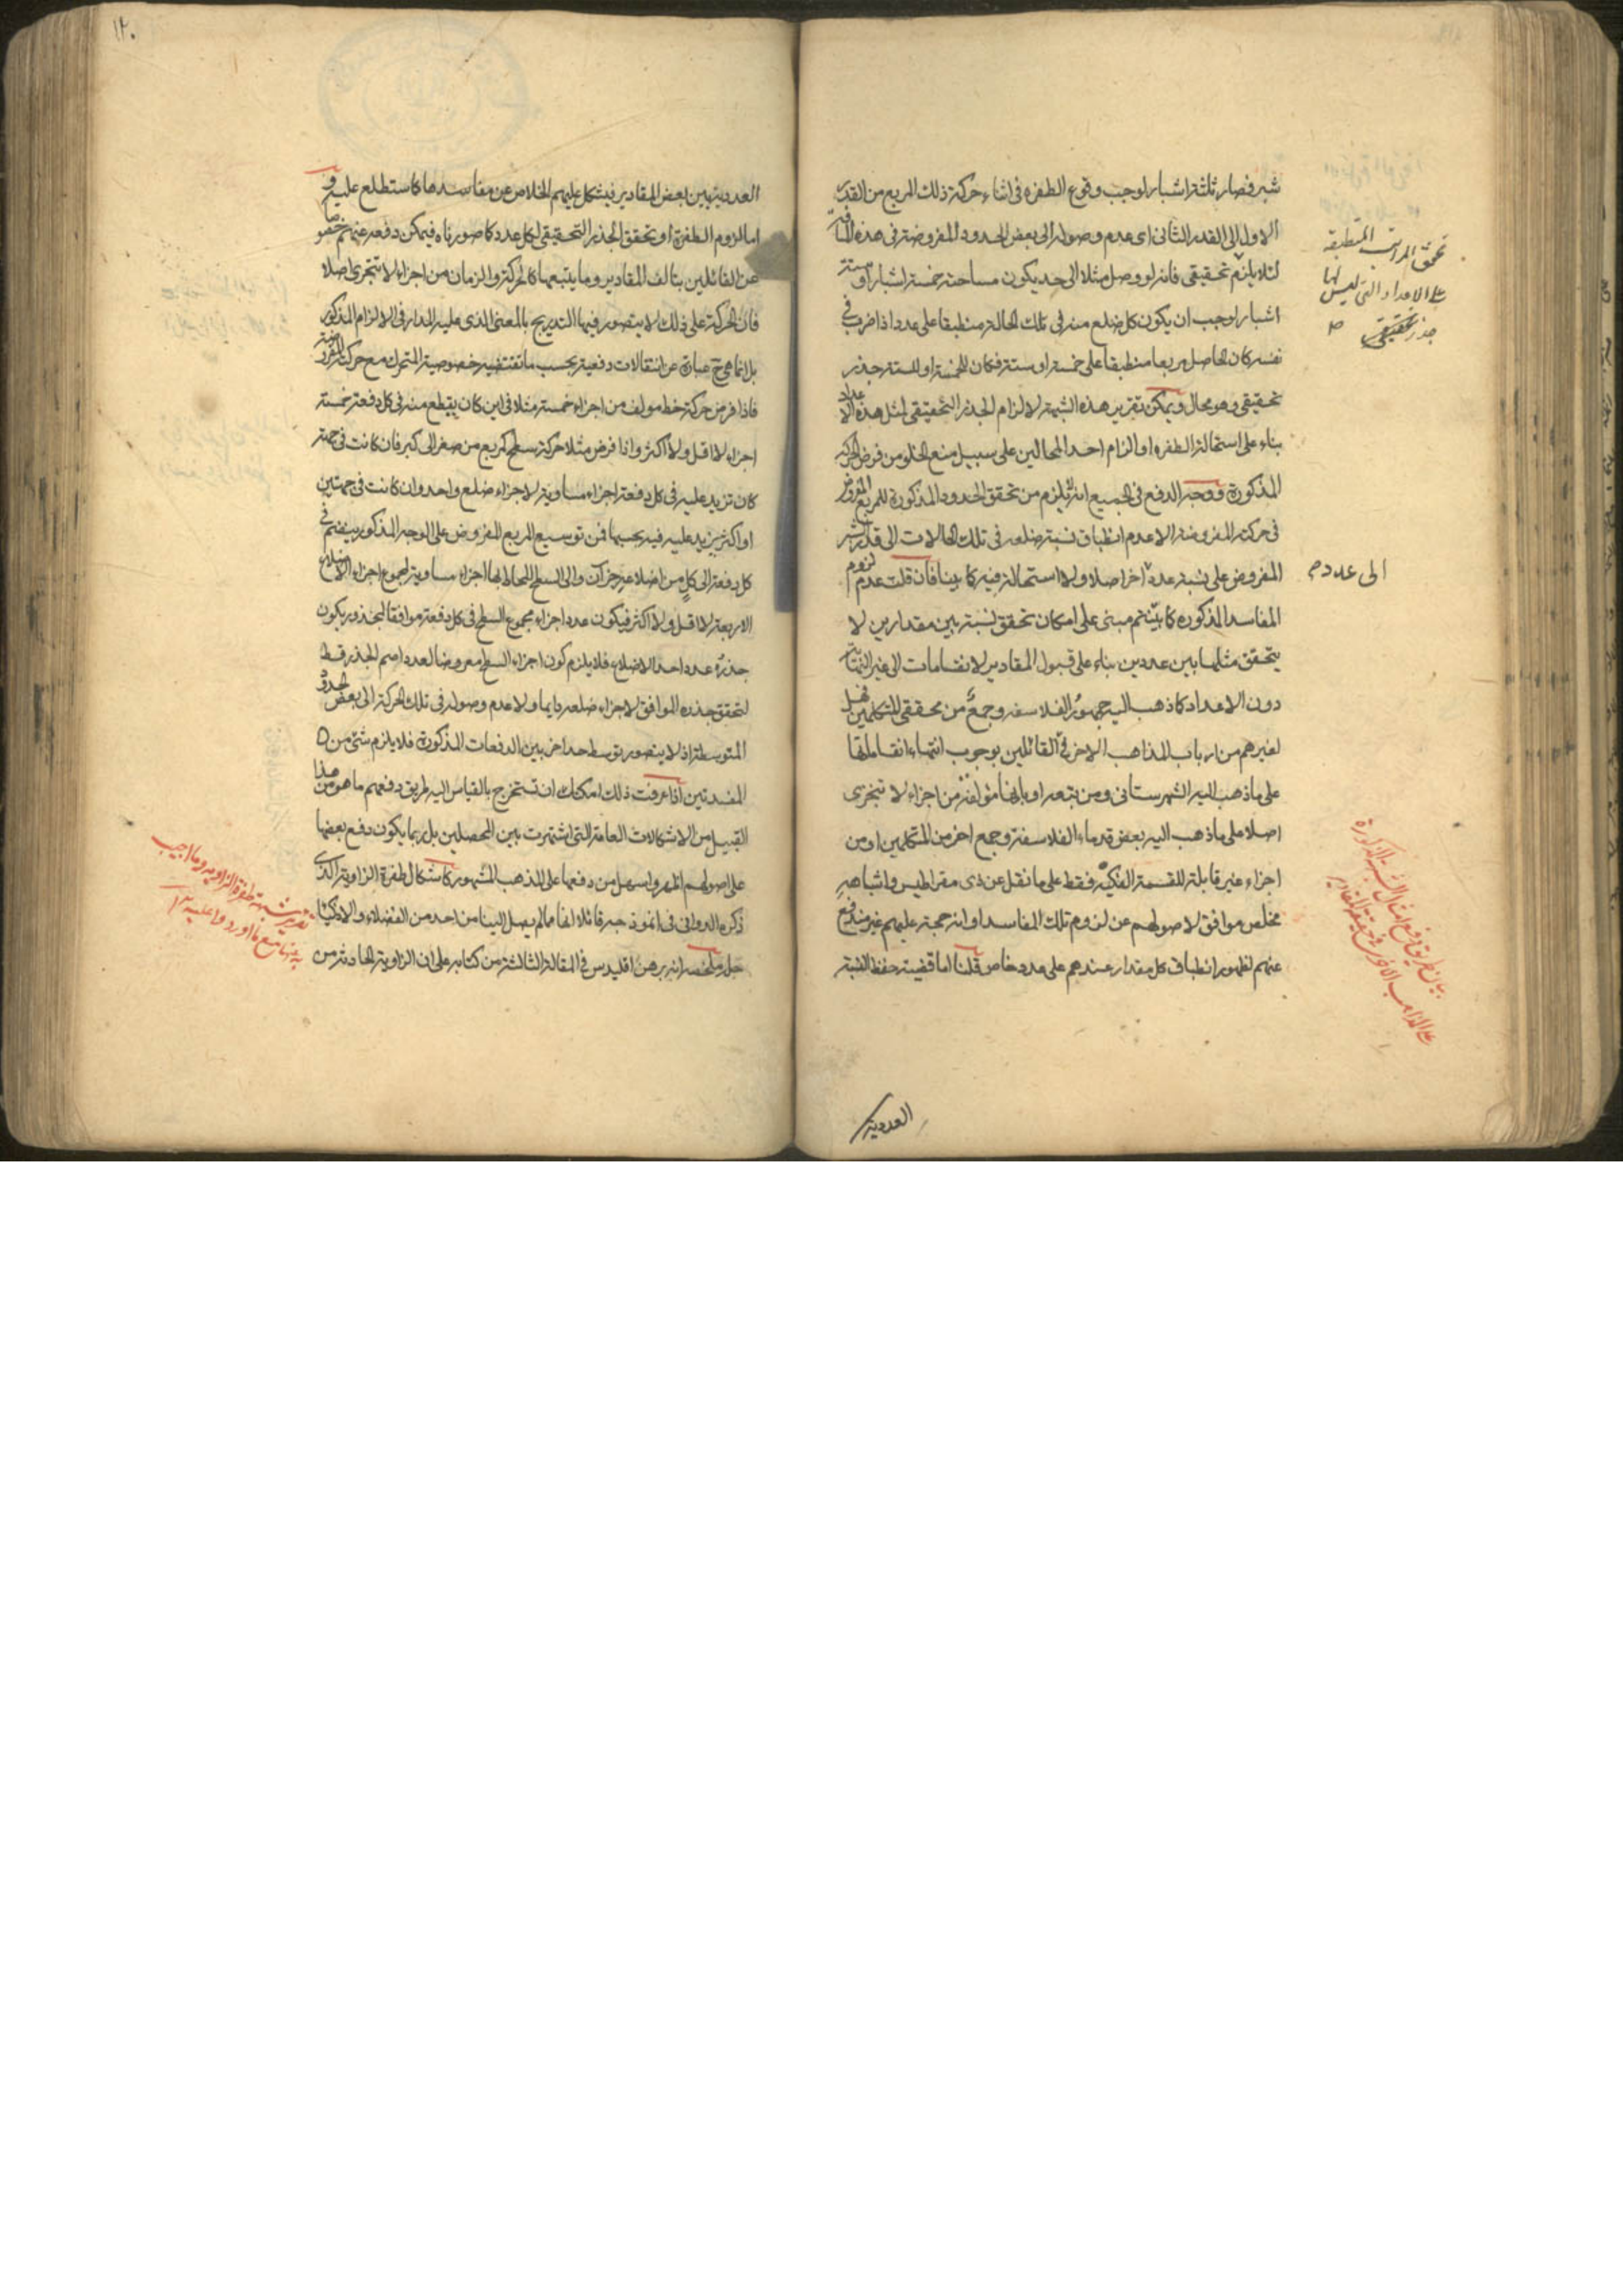 شبر فصار ثلثة اشبار لوجب وقوع الطفره فى اثناء حركة ذلك المربع من القدر
الاول الى القدر الثانى اى عدم وصوله الى بعض الحدود المفروضة فى هذه المسافة
لئلا يلزم تحقيقى فانه لو وصل مثلا الى حد يكون مساحته خمسة اشبار او ستة
اشبار لوجب ان يكون كل ضلع منه فى تلك الحالة منطبقا على عدد اذا ضرب فى
نفسه كان الحاصل مربعا منطبقا على خمسة او ستة فكان للخمسة او للستة جذر
تحقيقى وهو محال ويمكن تقرير هذه الشبهة لالزام الجذر التحقيقى لمثل هذه الاعداد
بناء على استحالة الطفره او الزام احد المحالين على سبيل منع الخلو من فرض الحركة
المذكورة ووجه الدفع فى الجميع انه لا يلزم من تحقق الحدود المذكورة للمربع المفروض
فى حركته المفروضة الا عدم انطباق نسبة ضلعه فى تلك الحالات الى قدر الشبر
المفروض على نسبة عدد اخر اصلا ولا استحالة فيه كما بينا فان قلت عدم لزوم
المفاسد المذكوره كما بينتم مبنى على امكان تحقق نسبة بين مقدارين لا
يتحقق مثلها بين عددين بناء على قبول المقادير لانقسامات الى غير النهاية
دون الاعداد كما ذهب اليه جمهور الفلاسفه وجمع من محققى المتكلمين فهل
لغيرهم من ارباب المذاهب الاخر فى القائلين بوجوب انتهاء انقساماتها
على ما ذهب اليه الشهرستانى ومن تبعه او بانها مؤلفة من اجزاء لا تتجزى
اصلا على ما ذهب اليه بعض قدماء الفلاسفة وجمع اخر من المتكلمين او من
اجزاء غير قابلة للقسمة الفكية فقط على ما نقل عن ذى مقراطيس واشباهه
مخلص موافق لاصولهم عن لزوم تلك المفاسد او انه حجة عليهم غير مندفع
عنهم لظهور انطباق كل مقدار عندهم على عدد خاص قلنا اما قضية حفظ النسبة
تحقق المراتب المنطبقة
على الاعداد التى ليس لها
جذر تحقيقى
الى عدد
بيان طريق دفع امثال الشبهة المذكورة
على المذاهب الاخر فى حقيقة المقادير
العددية
١٢٠
العددية بين بعض المقادير فيشكل عليهم الخلاص عن مفاسدها كما ستطلع عليه و
اما لزوم الطفرة او تحقق الجذر التحقيقى لكل عدد كما صورناه فيمكن دفعه عنهم خصوصا
عن القائلين بتالف المقادير وما يتبعها كالحركة والزمان من اجزاء لا تتجزى اصلا
فان الحركة على ذلك لا يتصور فيها التدريج بالمعنى الذى عليه المدار فى الالزام المذكور
بل انما هى ح عبارة عن انتقالات دفعية بحسب ما تقتضيه خصوصية المتحرك مع حركته المفروضة
فاذا فرض حركة خط مولف من اجزاء خمسة مثلا فى اين كان يقطع منه فى كل دفعة خمسة
اجزاء لا اقل ولا اكثر واذا فرض مثلا حركة سطح كمربع من صغر الى كبر فان كانت فى جهة
كان تزيد عليه فى كل دفعة اجزاء مساوية لاجزاء ضلع واحد وان كانت فى جهتين
او اكثر يزيد عليه فيه بحسبها فمن توسيع المربع المفروض على الوجه المذكور ينضم فى
كل دفعة الى كل من اضلاعه جزآن والى السطح المحاط بها اجزاء مساوية لمجموع اجزاء الاضلاع
الاربعة لا اقل ولا اكثر فيكون عدد اجزاء مجموع السطح فى كل دفعة موافقا لمجذور يكون
جذره عدد احد الاضلاع فلا يلزم كون اجزاء السطح معروضا لعدد اصم الجذر قط
لتحقق جذره الموافق لاجزاء ضلعه دايما ولا عدم وصوله فى تلك الحركة الى بعض الحدود
المتوسطة اذ لا يتصور توسط حد اخر بين الدفعات المذكورة فلا يلزم شئ من
المفسدتين اذا عرفت ذلك امكنك ان تستخرج بالقياس اليه طريق دفعهم ما هو من هذا
القبيل من الاشكالات العامة التى اشتهرت بين المحصلين بل ربما يكون دفع بعضها
على اصولهم اظهر واسهل من دفعها على المذهب المشهور كاشكال طفرة الزاوية الذى
ذكره الدوانى فى انموذجه قائلا انها مما لم يصل الينا من احد من الفضلاء والاذكياء
حله وملخصه انه برهن اقليدس فى المقالة الثالثة من كتابه على ان الزاوية الحادثة من
تقرير شبهة طفرة الزاوية وما اجيب
به عنها مع ما اورد وا عليه